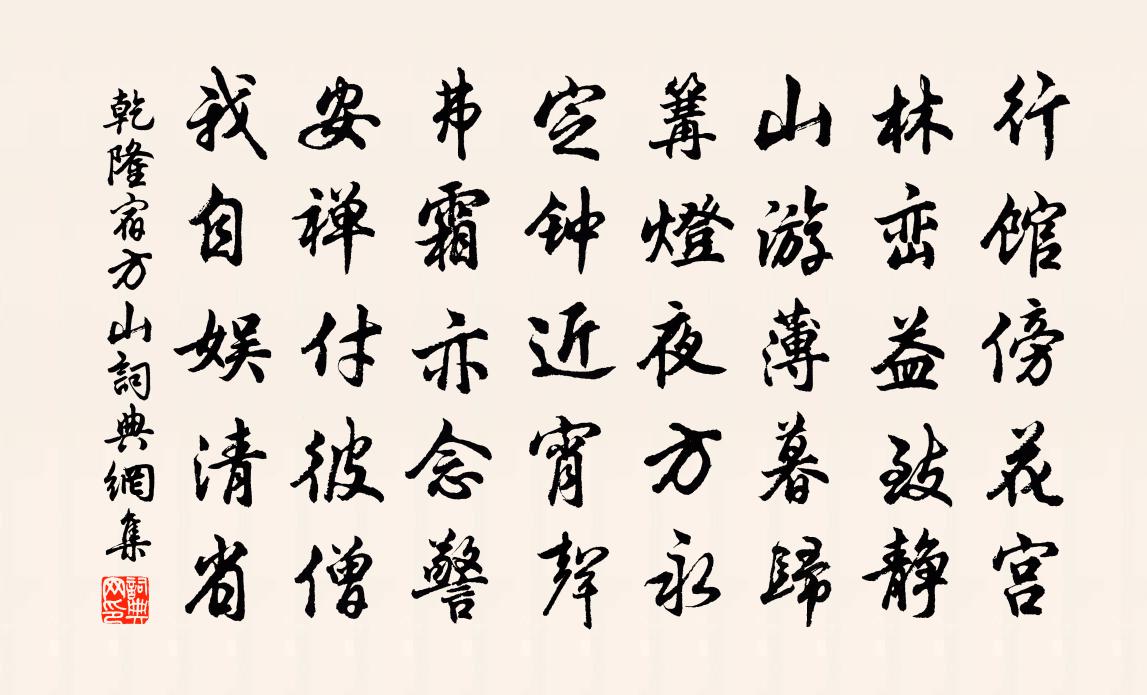 行馆傍花宫
林峦益致静
山游薄暮歸
篝燈夜方永
定钟近宵聲
弗霜亦念警
安禅付彼僧
我自娱清省
乾隆宿方山詞典網集
詞典网印